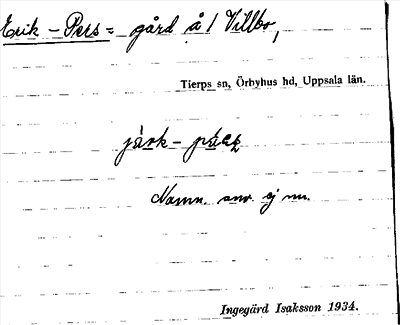 Erik-Pers= gård å / Villbo,
Tierps sn, Örbyhus hd, Uppsala län.
Namn. anv. ej nu.
Ingegärd Isaksson 1934.